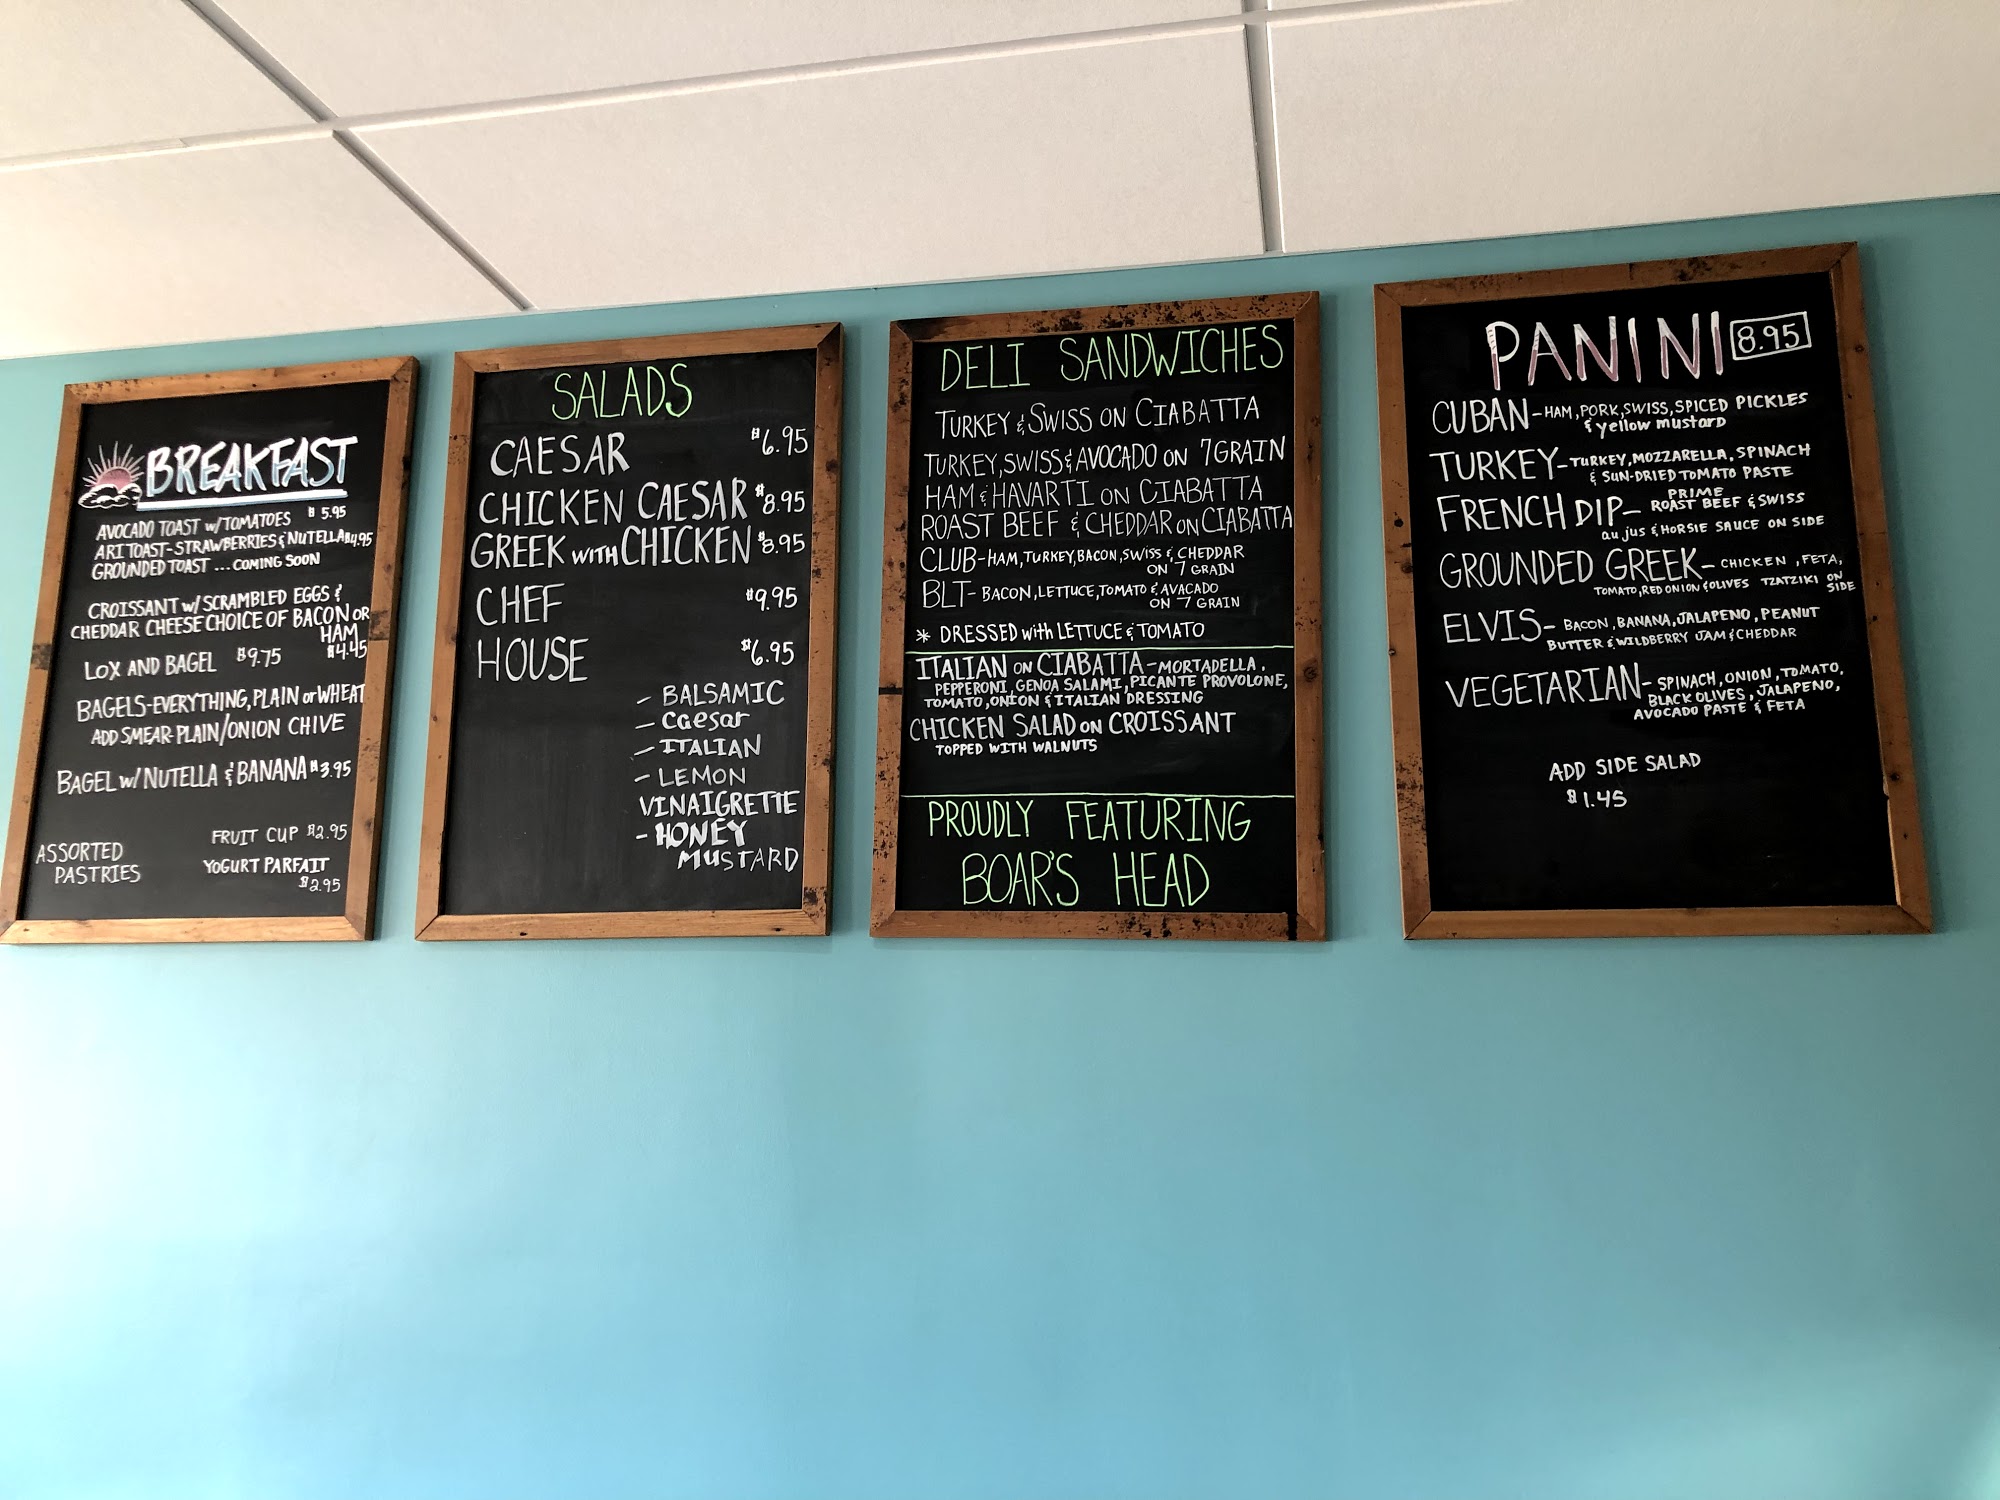 BREAKFAST
AVOCADO TOAST w/TOMATOES $5.95
ARI TOAST-STRAWBERRIES & NUTELLA $4.95
GROUNDED TOAST ... COMING SOON
CROISSANT w/ SCRAMBLED EGGS &
CHEDDAR CHEESE CHOICE OF BACON OR
HAM
$4.45
LOX AND BAGEL $9.75
BAGELS-EVERYTHING, PLAIN or WHEAT
ADD SMEAR-PLAIN/ONION CHIVE
BAGEL w/ NUTELLA & BANANA $3.95
FRUIT CUP $2.95
ASSORTED
PASTRIES
YOGURT PARFAIT
$2.95
SALADS
CAESAR $6.95
CHICKEN CAESAR $8.95
GREEK WITH CHICKEN $8.95
CHEF $9.95
HOUSE $6.95
- BALSAMIC
- Caesar
- ITALIAN
- LEMON
VINAIGRETTE
- HONEY
MUSTARD
DELI SANDWICHES
TURKEY & SWISS ON CIABATTA
TURKEY, SWISS & AVOCADO ON 7 GRAIN
HAM & HAVARTI ON CIABATTA
ROAST BEEF & CHEDDAR ON CIABATTA
CLUB-HAM, TURKEY, BACON, SWISS & CHEDDAR
ON 7 GRAIN
BLT- BACON, LETTUCE, TOMATO & AVACADO
ON 7 GRAIN
* DRESSED with LETTUCE & TOMATO
ITALIAN ON CIABATTA-MORTADELLA,
PEPPERONI, GENOA SALAMI, PICANTE PROVOLONE,
TOMATO, ONION & ITALIAN DRESSING
CHICKEN SALAD ON CROISSANT
TOPPED WITH WALNUTS
PROUDLY FEATURING
BOAR'S HEAD
PANINI 8.95
CUBAN-HAM, PORK, SWISS, SPICED PICKLES
& yellow mustard
TURKEY-TURKEY, MOZZARELLA, SPINACH
& SUN-DRIED TOMATO PASTE
FRENCH DIP- PRIME
ROAST BEEF & SWISS
au jus & HORSIE SAUCE ON SIDE
GROUNDED GREEK- CHICKEN, FETA,
TOMATO, RED ONION & OLIVES TZATZIKI ON
SIDE
ELVIS- BACON, BANANA, JALAPENO, PEANUT
BUTTER & WILDBERRY JAM & CHEDDAR
VEGETARIAN- SPINACH, ONION, TOMATO,
BLACK OLIVES, JALAPENO,
AVOCADO PASTE & FETA
ADD SIDE SALAD
$1.45